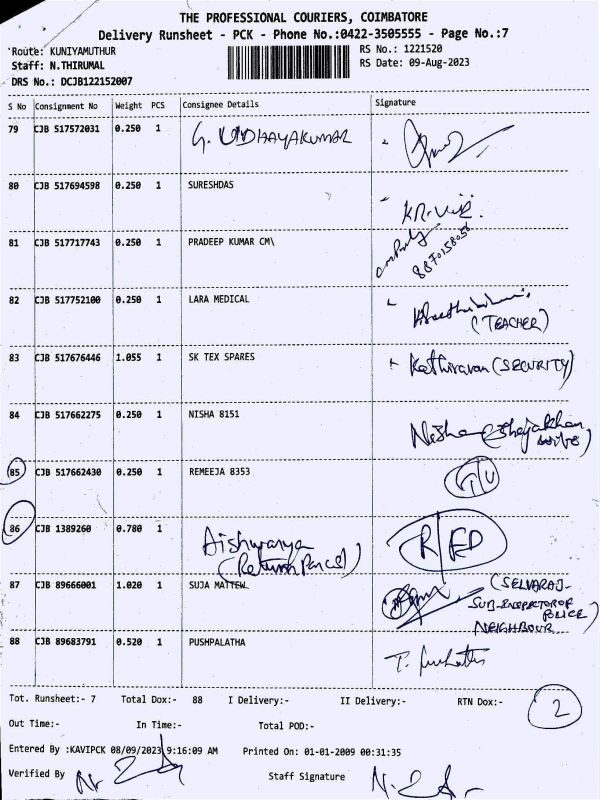 THE PROFESSIONAL COURIERS, COIMBATORE
Delivery Runsheet - PCK - Phone No.:0422-3505555 - Page No.:7
Route: KUNIYAMUTHUR
RS No.: 1221520
Staff: N.THIRUMAL
RS Date: 09-Aug-2023
DRS No.: DCJB122152007
S No Consignment No Weight PCS Consignee Details Signature
79 CJB 517572031 0.250 1 G. UDHAYAKUMAR
80 CJB 517694598 0.250 1 SURESHDAS
81 CJB 517717743 0.250 1 PRADEEP KUMAR CM\ 8870158058
82 CJB 517752100 0.250 1 LARA MEDICAL
(TEACHER)
83 CJB 517676446 1.055 1 SK TEX SPARES Kathiravan (SECURITY)
84 CJB 517662275 0.250 1 NISHA 8151 Nisha
85 CJB 517662430 0.250 1 REMEEJA 8353
86 CJB 1389260 0.780 1 Aishwarya
(Return Parcel)
87 CJB 89666001 1.020 1 SUJA MATTEW (SELVARAJ-
SUB-INSPECTOR OF
POLICE)
NEIGHBOUR
88 CJB 89683791 0.520 1 PUSHPALATHA
Tot. Runsheet:- 7 Total Dox:- 88 I Delivery:- II Delivery:- RTN Dox:- 2
Out Time:- In Time:- Total POD:-
Entered By :KAVIPCK 08/09/2023 9:16:09 AM Printed On: 01-01-2009 00:31:35
Verified By Staff Signature